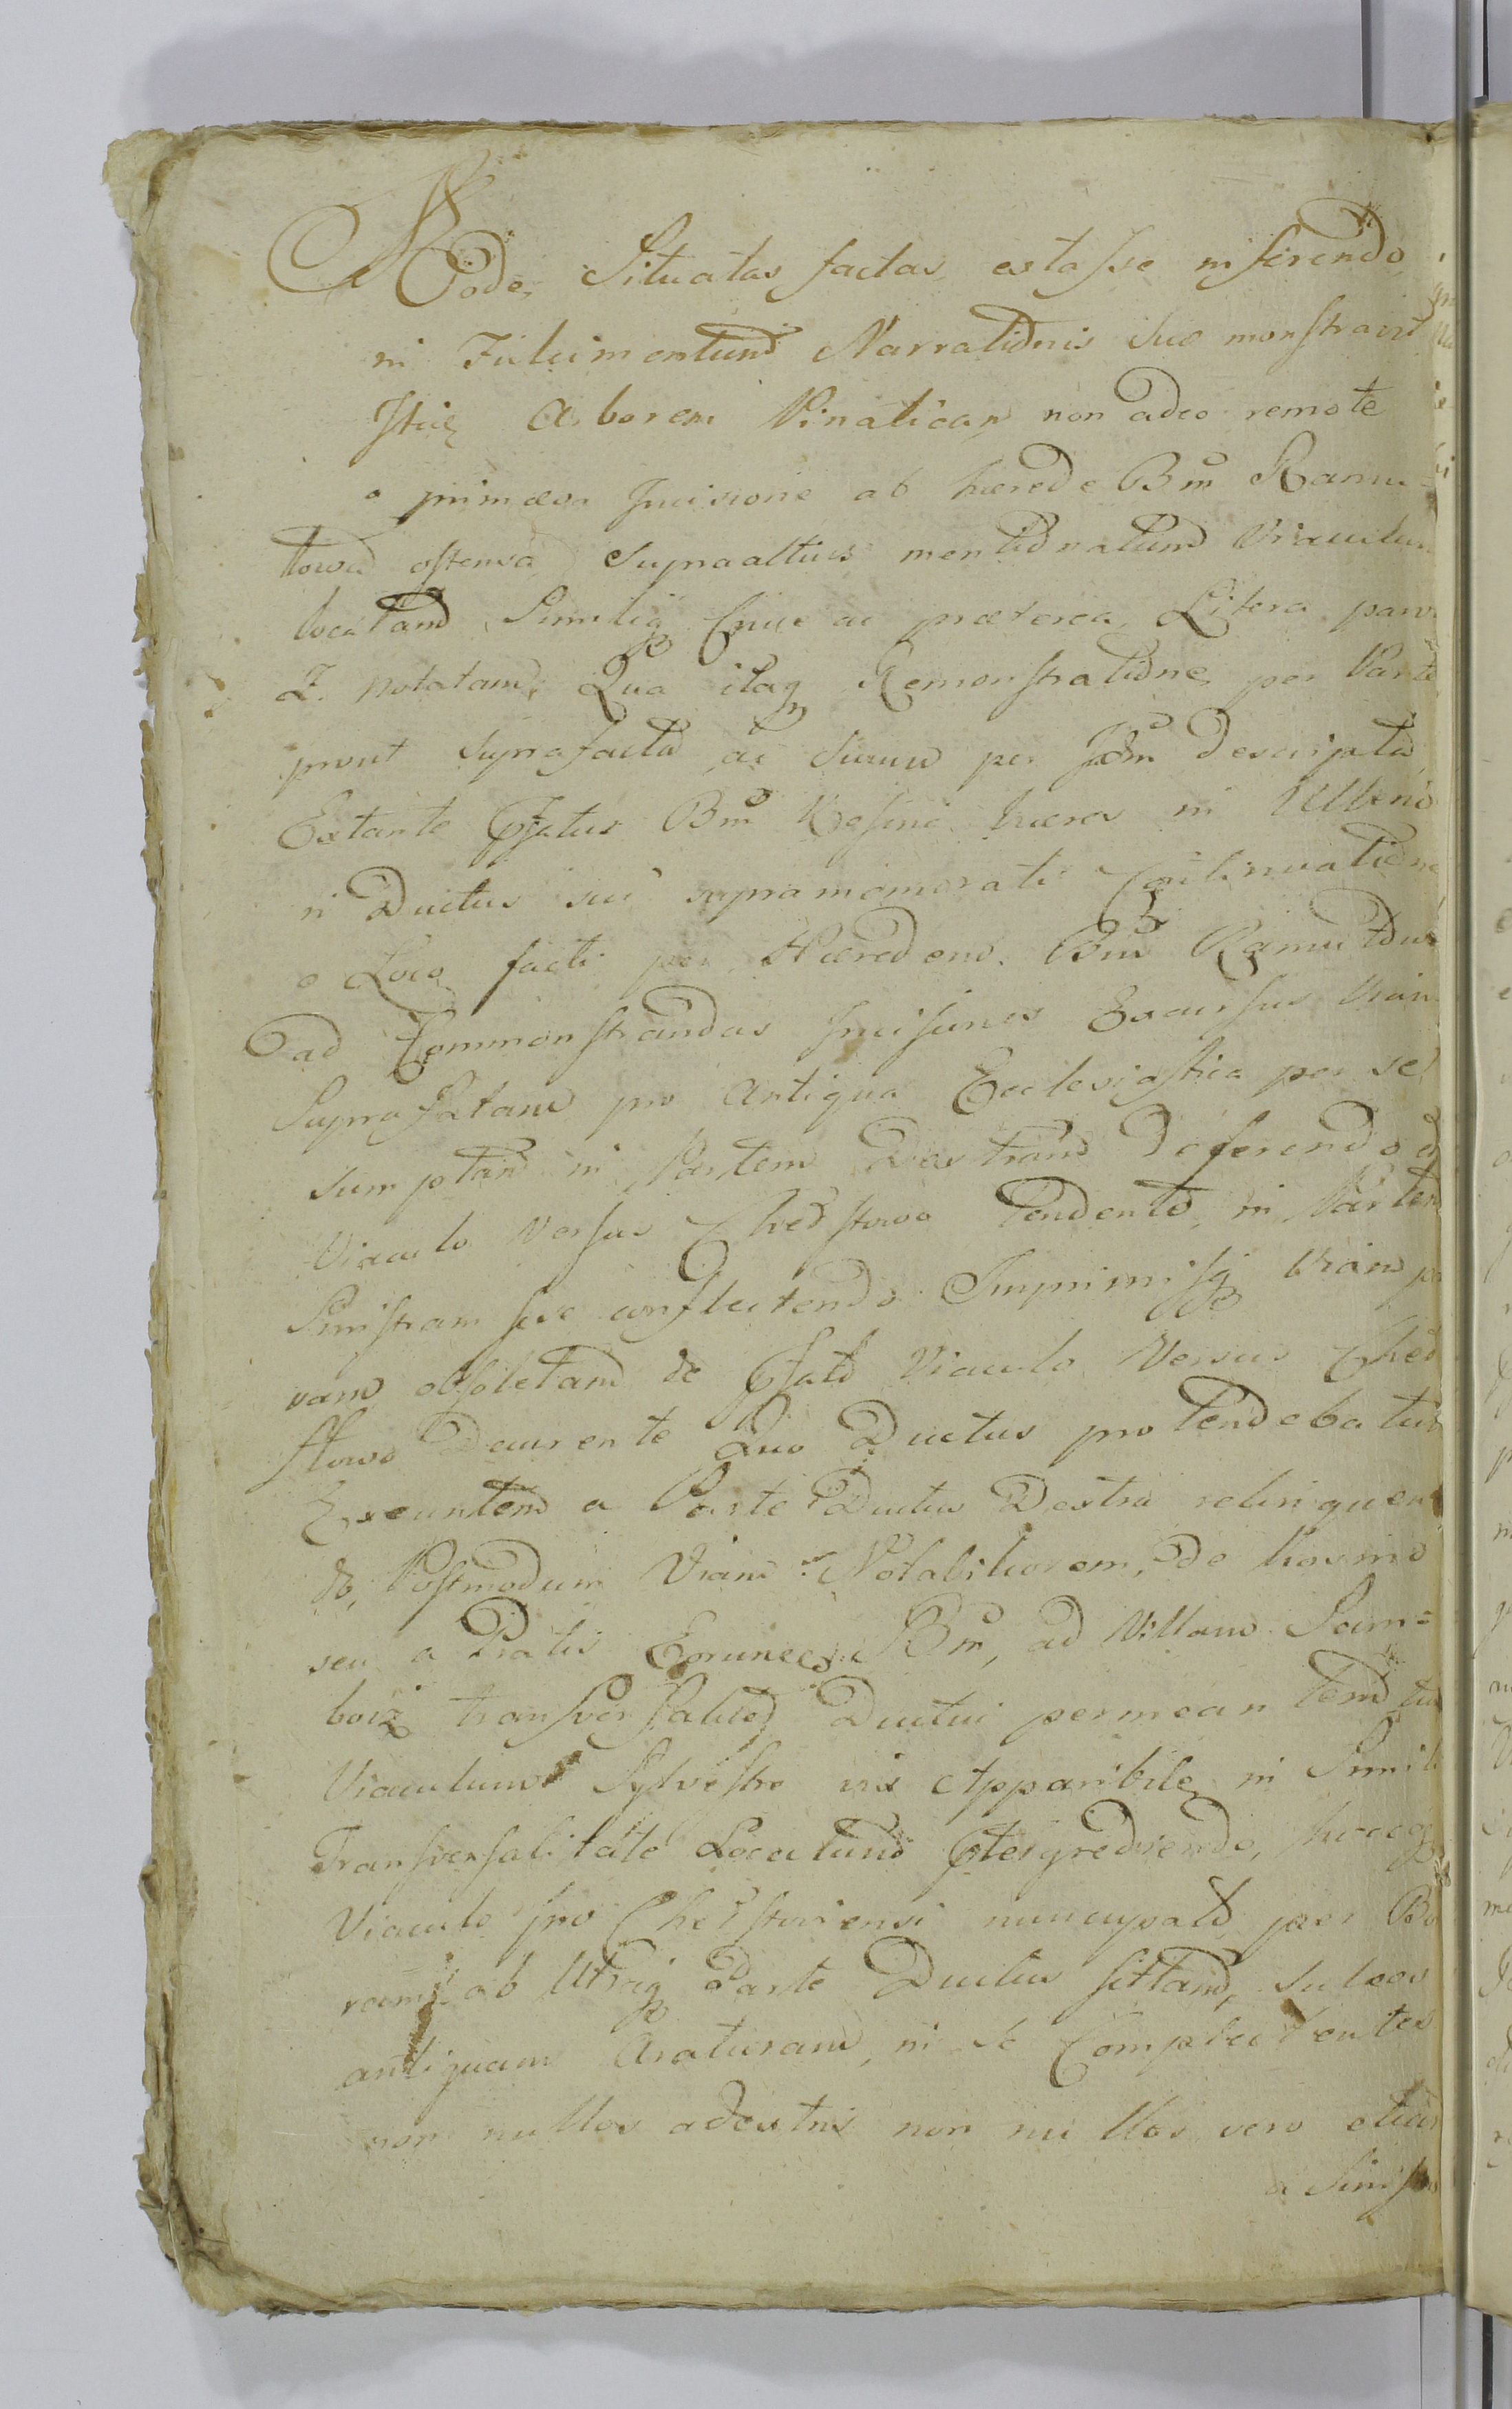 Pode, Situatas factas, extasse inferendo,
in Fulcimentum Narrationis suæ monstravit
Itiq arborem Vinaticam non adeo remote
a primæva Incisione ab hærede Bm Ramu-
towa ostensa, supra altius mentionatum Viaculum
locatam, Similiq Cruce ac præterea Litera parva
Z. notatam; Qua itaq Remonstratione, per Parte
prout supra facta ac suum per Jdm descripta
Extante Pfatus Bm hæres in
in Ductus sui supramemorati Continuatione
a Loco facti per Hæredem Bm Ramutow
ad Commonstrandas Incisiones Excursus Viam
Supra fatam pro Antiqua Ecclesiastica per se
sumptam in Partem Dextram Deferendo et
Viaculo Versus Chedstowo tendente, in Partem
Sinistram sese conflectendo Inprimisq Viam par
vam obsoletam de Pfato Viaculo Versus Ched
stowo Decurente Quo Ductus protendebatur
Exeuntem a Parte Ductus Dextra relinquen
do, Postmodum Viam Notabiliorem, de
seu a Pratis Bm, ad Villam Sam=
borz transversaliter Ductui permeantem tum
Viaculum Sylvestre vix Apparibile in Simili
Transversalitate Locatum Ptergrediendo, hocq
Viaculo pro Chedstoviensi nuncupato per Bo
ram ab Utraq Parte Ductus sitam, sulcos
antiquam Araturam, in se Complectentes
non nullos a dextris non nullos vero etiam
a Sinistris